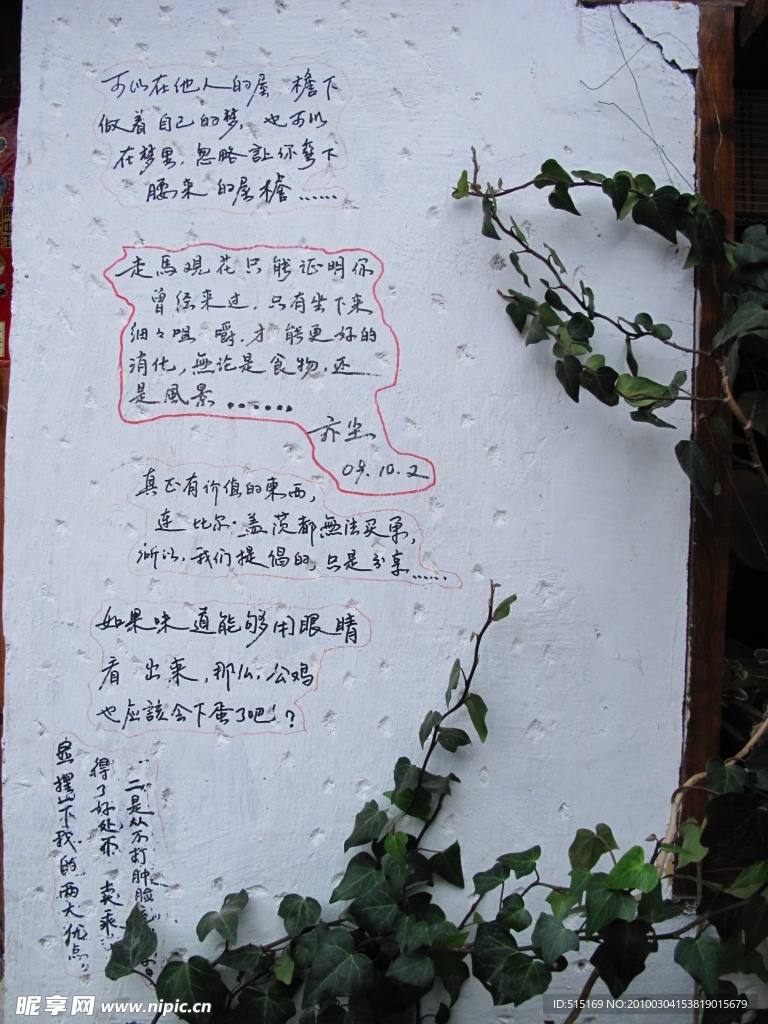 可以在他人的屋檐下
做着自己的梦,也可以
在梦里,忽略让你弯下
腰来的屋檐……
走馬观花只能证明你
曾经来过,只有坐下来
细々咀嚼,才能更好的
消化,無论是食物,还
是風景……
亦尘
09.10.2
真正有价值的東西,
連比尔·盖茨都無法买单,
所以,我们提倡的,只是分享……
如果味道能够用眼睛
看出来,那么,公鸡
也应該会下蛋了吧!?
二是从不打肿脸
得了好处不卖乖
显摆一下我的两大优点
昵享网 www.nipic.cn
ID:515169 NO:20100304153819015679